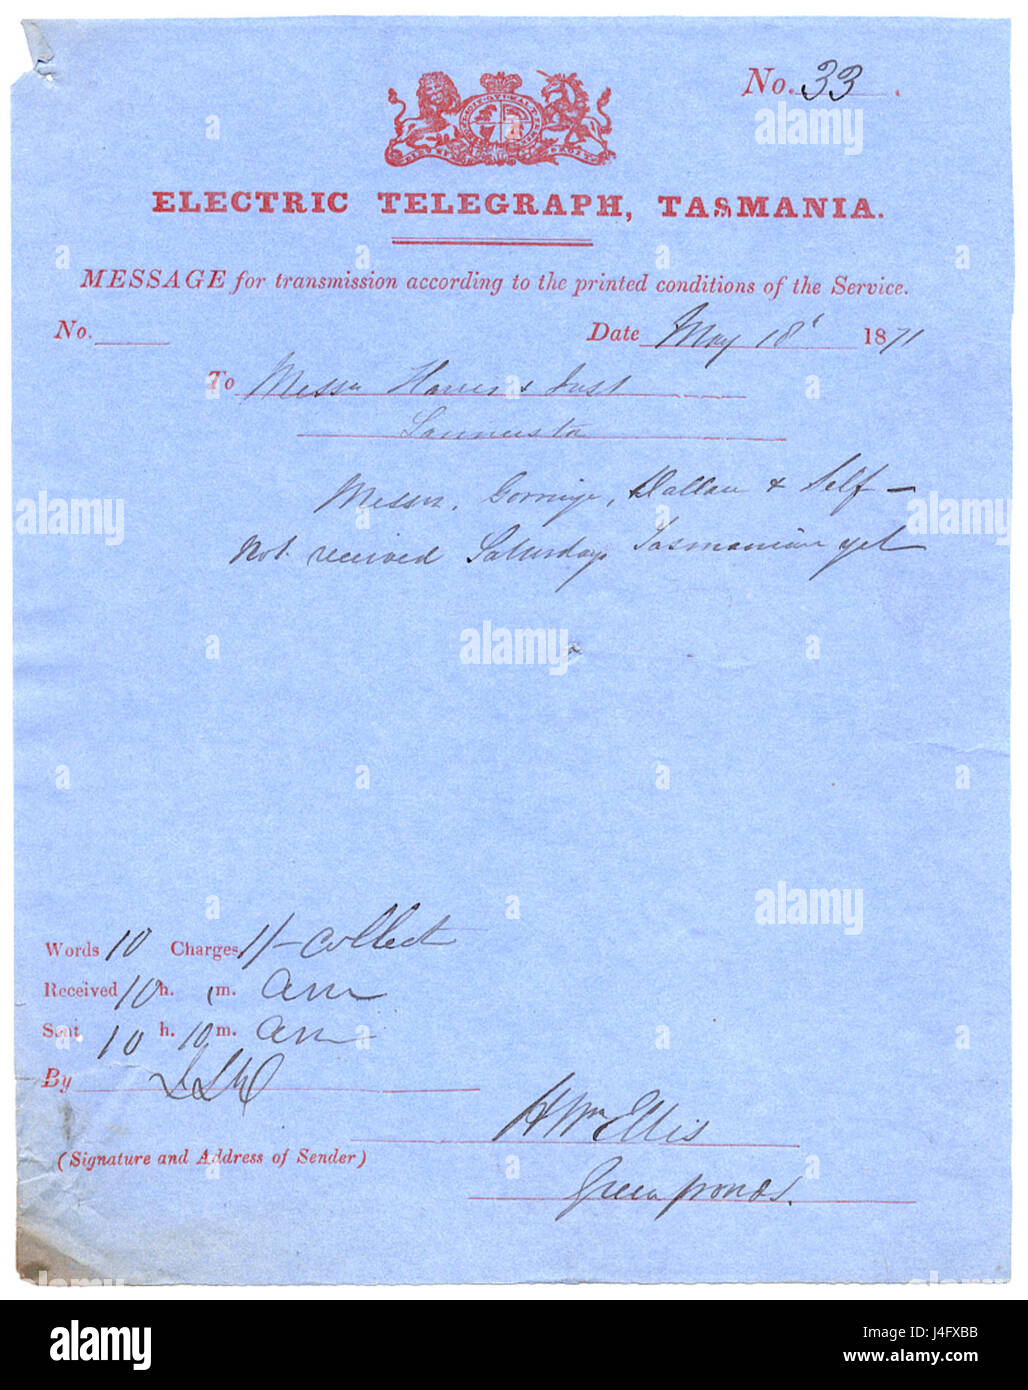 No. 33 .
ELECTRIC TELEGRAPH, TASMANIA.
MESSAGE for transmission according to the printed conditions of the Service.
No.
Date May 18 1871
To Messrs Harris & Just
Launceston
Messrs. Gorringe, & Self —
Not received Saturdays Tasmanian yet
Words 10 Charges 1/- collect
Received 10 h. 1 m. am
Sent 10 h. 10 m. am
By
H Wm Ellis
(Signature and Address of Sender)
Green ponds.
alamy
Image ID: J4FXBB
www.alamy.com